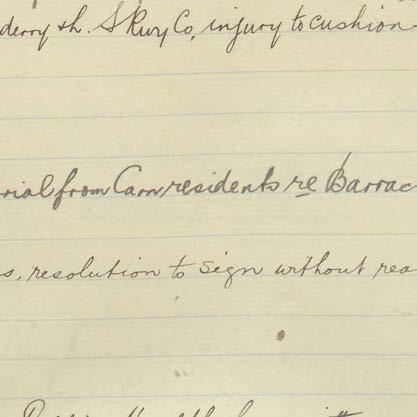 derry & L. S Rwy Co, injury to cushion
rial from Carn residents re Barrac
s, resolution to sign without rea